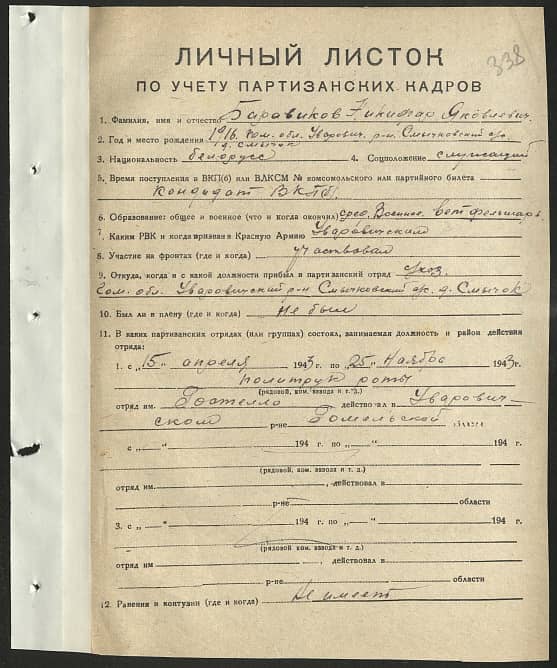 338
ЛИЧНЫЙ ЛИСТОК
ПО УЧЕТУ ПАРТИЗАНСКИХ КАДРОВ
1. Фамилия, имя и отчество Боровиков Никифор Яковлевич
2. Год и место рождения 1916. Гом. обл. Уварович. р-н. Смычковский с/с.
д. Смычок
3. Национальность белорусс 4. Соцположение служащий
5. Время поступления в ВКП(б) или ВЛКСМ № комсомольского или партийного билета
Кондидат ВКПб.
6. Образование: общее и военное (что и когда окончил) сред. Военное. ветфельшер.
7. Каким РВК и когда призван в Красную Армию Уваровичским
8. Участие на фронтах (где и когда) участвовал
9. Откуда, когда и с какой должности прибыл в партизанский отряд
Гом. обл. Уваровичский р-н Смычковский с/с. д. Смычок
10. Был ли в плену (где и когда) не был
11. В каких партизанских отрядах (или группах) состоял, занимаемая должность и район действия
отряда:
1. с „15" апреля 1943 г. по „25" Ноябрь 1943 г.
политрук роты
(рядовой, ком. взвода и т. д.)
отряд им. Гостелло действовал в Уварович-
ском р-не Гомельской области
с „—" 194 г. по „—" 194 г.
(рядовой, ком. взвода и т. д.)
отряд им. , действовал в
р-не области
3. с „—" 194 г. по „—" 194 г.
(рядовой, ком. взвода и т. д.)
отряд им. , действовал в
р-не области
12. Ранения и контузии (где и когда) Не имеет